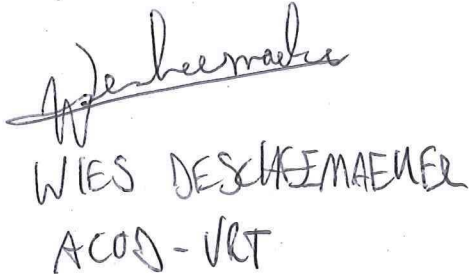 WIES DESCHEEMAEKER
ACOD-VRT